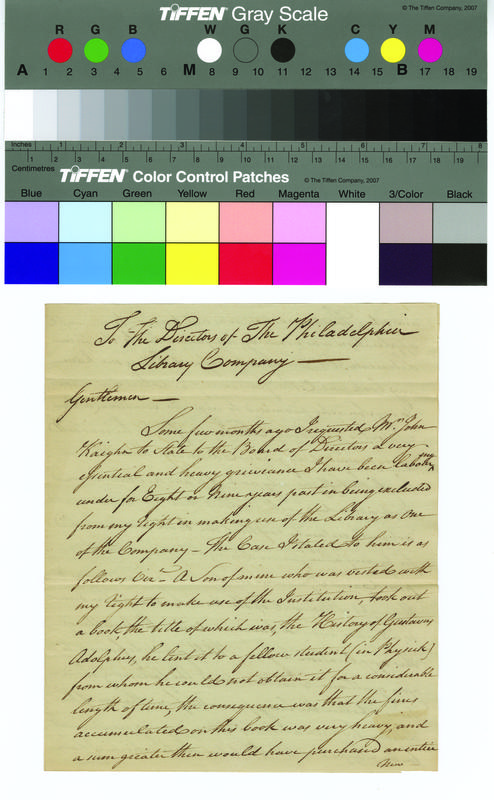 TIFFEN Gray Scale
© The Tiffen Company, 2007
R G B W G K C Y M
A 1 2 3 4 5 6 M 8 9 10 11 12 13 14 15 B 17 18 19
Inches 1 2 3 4 5 6 7 8
Centimetres 1 2 3 4 5 6 7 8 9 10 11 12 13 14 15 16 17 18 19
TIFFEN Color Control Patches
© The Tiffen Company, 2007
Blue Cyan Green Yellow Red Magenta White 3/Color Black
To The Directors of The Philadelphia
Library Company —
Gentlemen —
Some few months ago I requested Mr. John
Kaighn to State to the Board of Directors a very
essential and heavy grievance I have been labouring
under for Eight or Nine years past in being excluded
from my right in making use of the Library as One
of the Company – The Case I stated to him is as
follows Viz – A Son of mine who was vested with
my right to make use of the Institution, took out
a book, the title of which was, the History of Gustavus
Adolphus, he lent it to a fellow student (in Physick)
from whom he could not obtain it for a considerable
length of time, the consequence was that the fines
accumulated on this book was very heavy, and
a sum greater then would have purchased an intire
New